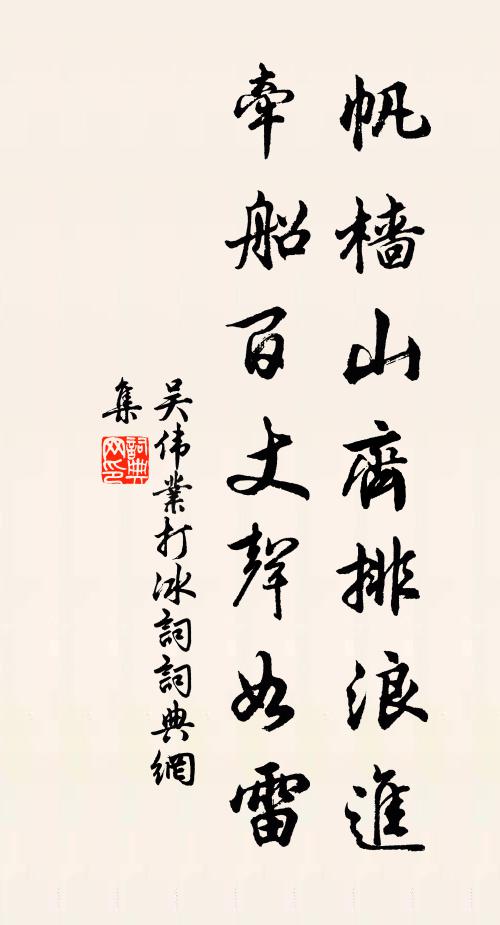 帆檣山齊排浪進
牽船百丈聲如雷
吴伟業打冰詞詞典網
集
詞典
网印